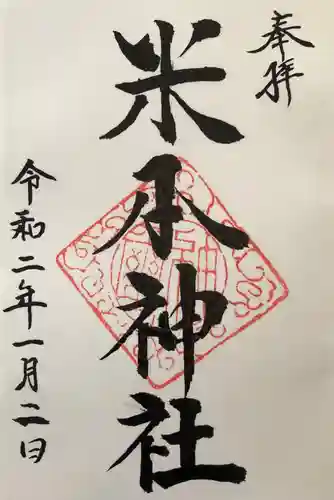 奉拝
米本神社
令和二年一月二日